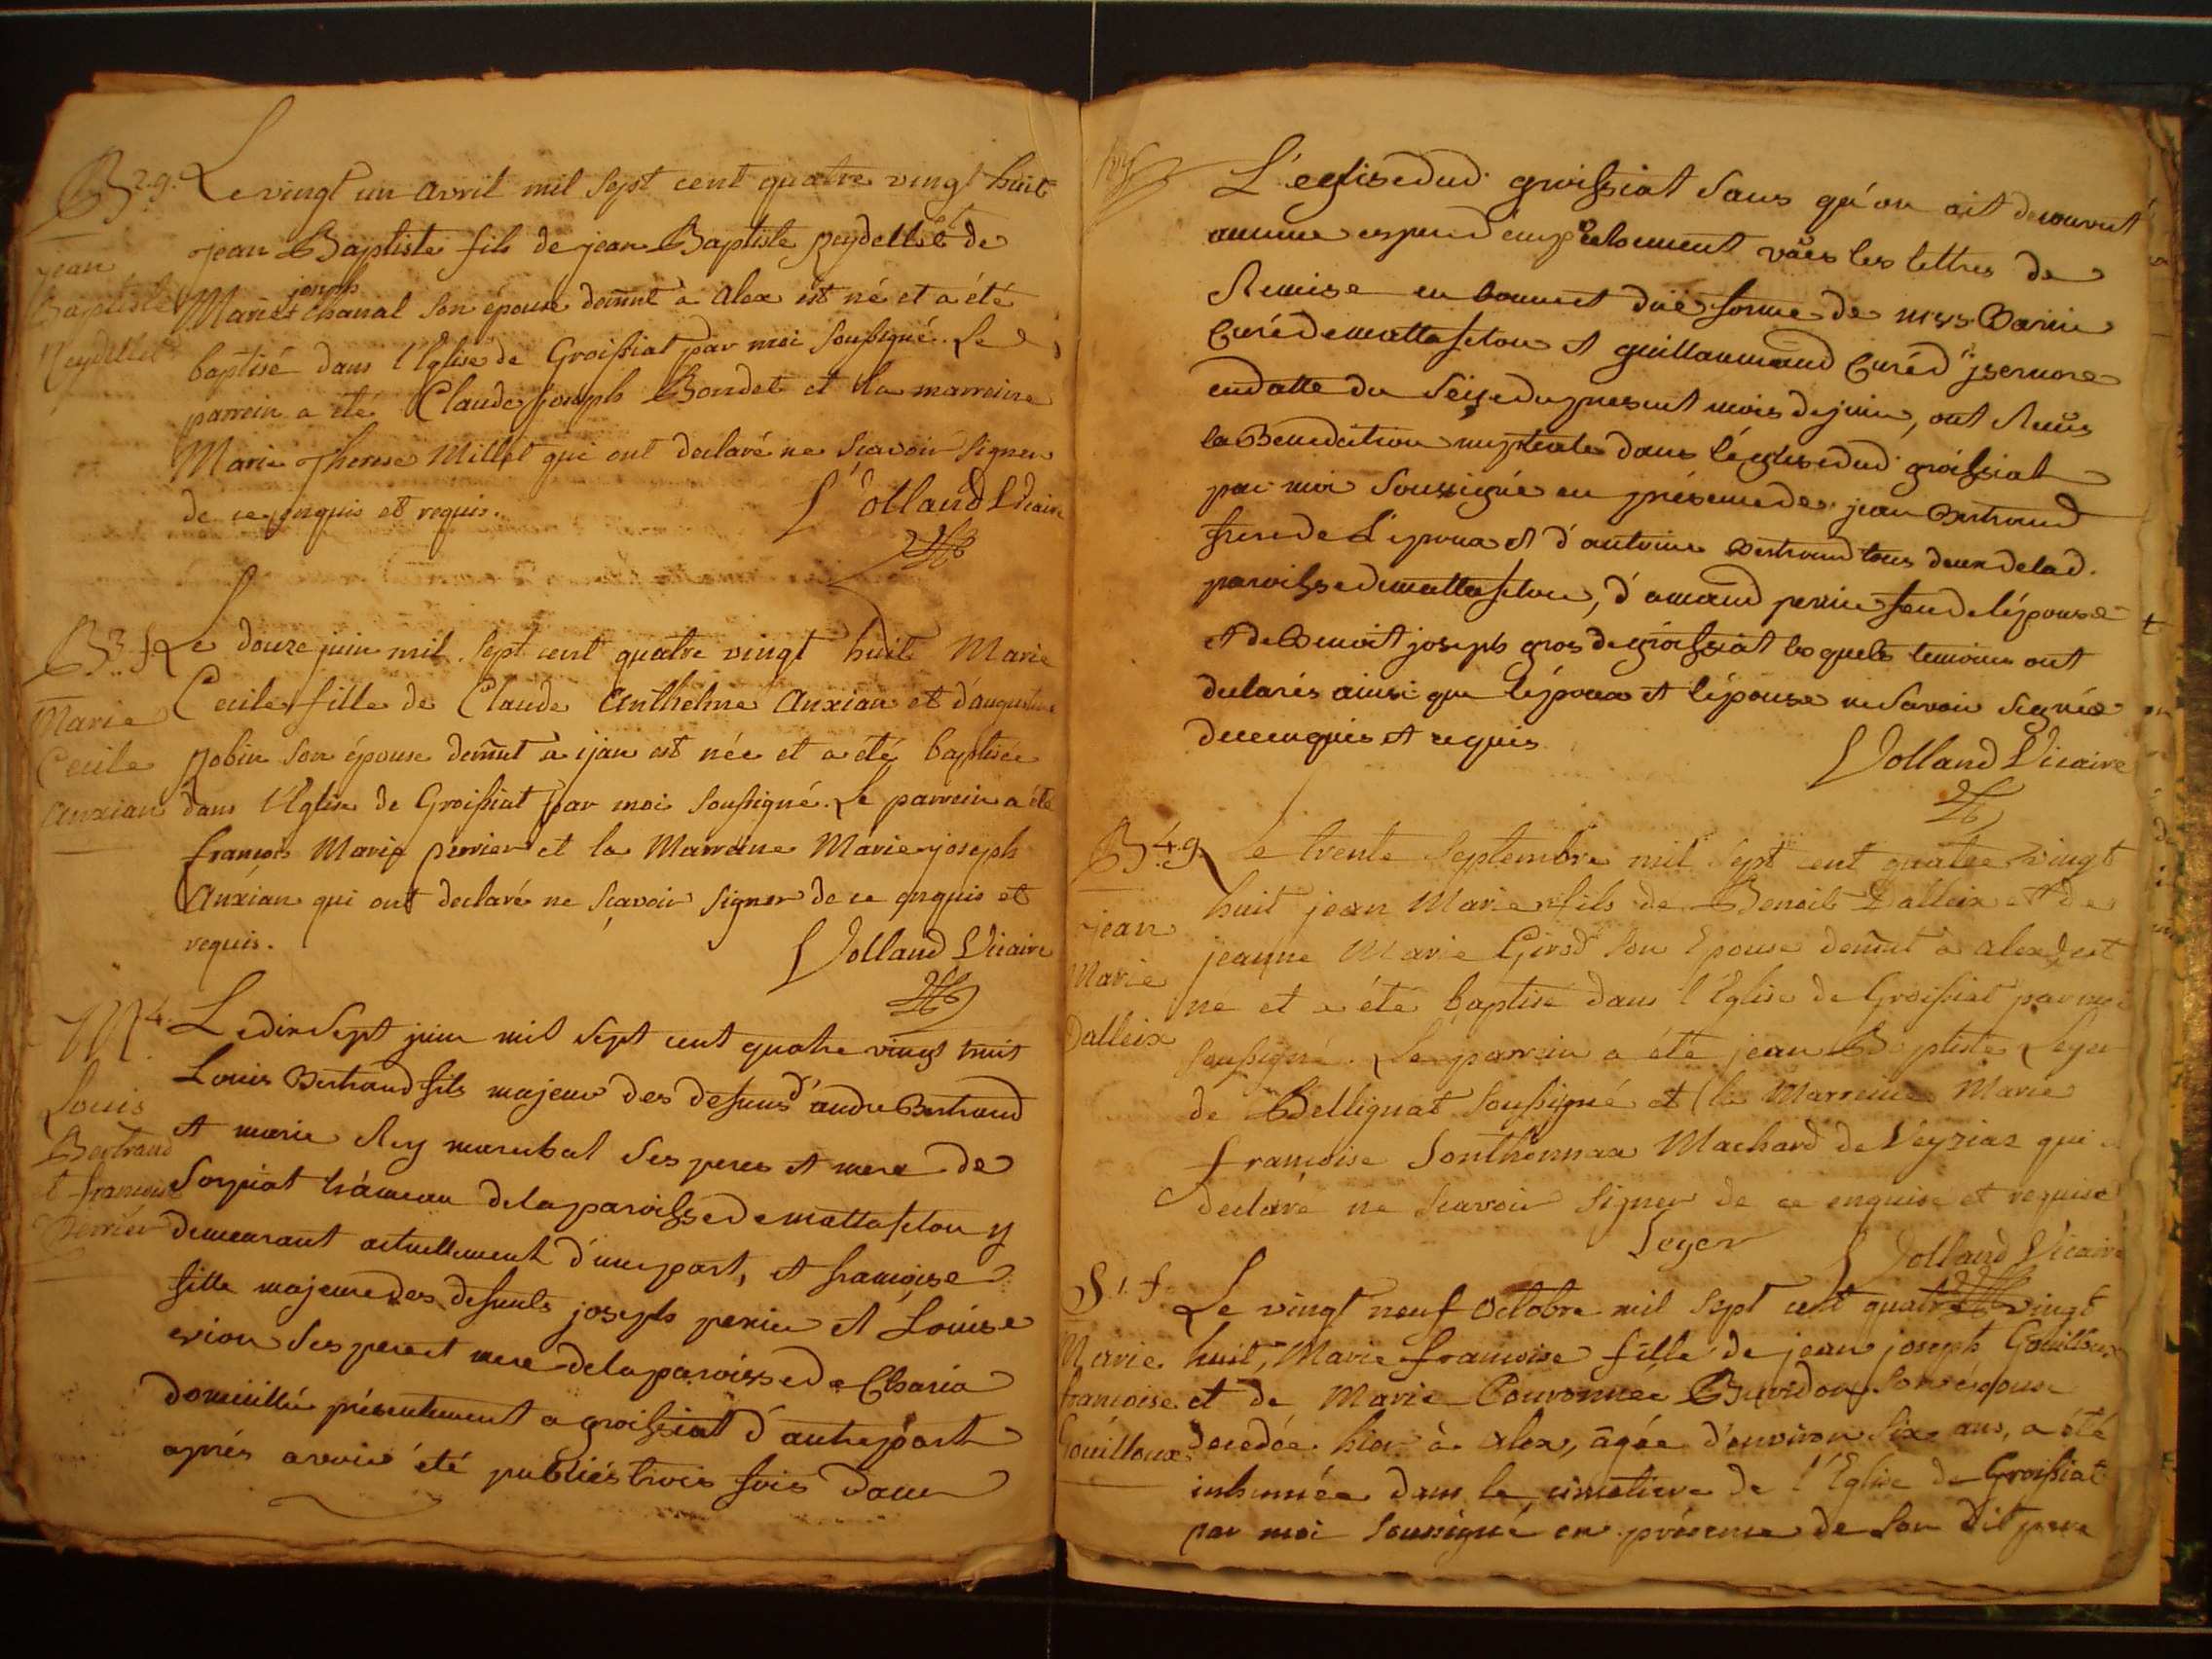 B. 2. g.
jean
Baptiste
Reydellet
Le vingt un avril mil sept cent quatre vingt huit
jean Baptiste fils de jean Baptiste Reydellet et de
Marie joseph Chanal son épouse demnt à alex est né et a été
baptisé dans l'Eglise de Groissiat par moi soussigné. Le
parrein a été Claude joseph Bondet et la marreine
Marie Therese Millet qui ont declaré ne sçavoir signer
de ce enquis et requis.
Jolland Vicaire
B. 3. f.
Marie
Cecile
anxian
Le douze juin mil sept cent quatre vingt huit Marie
Cecile fille de Claude Anthelme Anxian et d'augustine
Robin son épouse demnt a ijan est née et a été baptisée
dans l'Eglise de Groissiat par moi soussigné. Le parrein a été
françois Marie perrier et la Marreine Marie joseph
Anxian qui ont declaré ne sçavoir signer de ce enquis et
requis.
Jolland Vicaire
M. 4.
Louis
Bertrand
et françoise
Perrier
Le dix sept juin mil sept cent quatre vingt huit
Louis Bertrand fils majeur des defunts d'andre Bertrand
et marie Rey marechal ses peres et mere de
Sorpiat hámeau de la paroisse de mattafelon y
demeurant actuellement d'une part, et françoise
fille majeure des defunts joseph perrier et Louise
ses pere et mere de la paroisse de Charia
domicillié présentement a groissiat d'autre part
aprés avoir été publiés trois fois dans
L'eglise dud. groissiat sans qu'on ait decouvert
aucune espece d'empêchement vües les lettres de
Remise en bonne et düe forme de mrs
Curé de mattafelon et guillaumaud Curé d'jsernore
en datte du seize du present mois de juin, ont Reçus
la Benediction nuptiale dans l'église dud. groissiat
par moi soussigné en présence de jean Bertrand
frere de L'epoux et d'antoine Bertrand tous deux de lad.
paroisse de mattafelon, d'amand perrier de l'épouse
et de Benoit joseph gros de groissiat lesquels temoins ont
declarés ainsi que l'époux et l'épouse ne savoir signée
de ce enquis et requis
Jolland Vicaire
B. 4. g.
jean
Marie
Dalleix
Le trente septembre mil sept cent quatre vingt
huit jean Marie fils de Benoit Dalleix et de
jeanne Marie Girod son Epouse demnt à alex est
né et a été baptisé dans l'Eglise de Groissiat par moi
soussigné. Le parrein a été jean Baptiste Leger
de Bellignat soussigné et la Marreine Marie
françoise Sonthonnax Machard de Veyziaz qui a
declaré ne sçavoir signer de ce enquise et requise
Leger
Jolland Vicaire
S. 1. f.
Marie
françoise
Goüilloux
Le vingt neuf octobre mil sept cent quatre vingt
huit, Marie françoise fille de jean joseph Goüilloux
et de Marie Couronnée Buvidon son épouse
decedée hier à alex, agée d'environ six ans, a été
inhumée dans le cimetiere de l'Eglise de Groissiat
par moi soussigné en présence de son dit pere